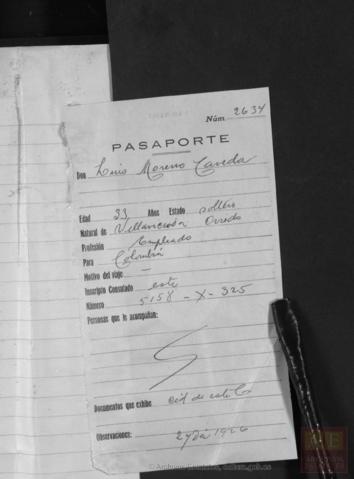 Núm. 2634
PASAPORTE
Don Luis Moreno Caveda
Edad 33 Años Estado soltero
Natural de Oviedo
Profesión Empleado
Para Colombia
Motivo del viaje —
Inscripto Consulado este
Número 5158 - X - 325
Personas que le acompañan:
Documentos que exhibe
Observaciones: